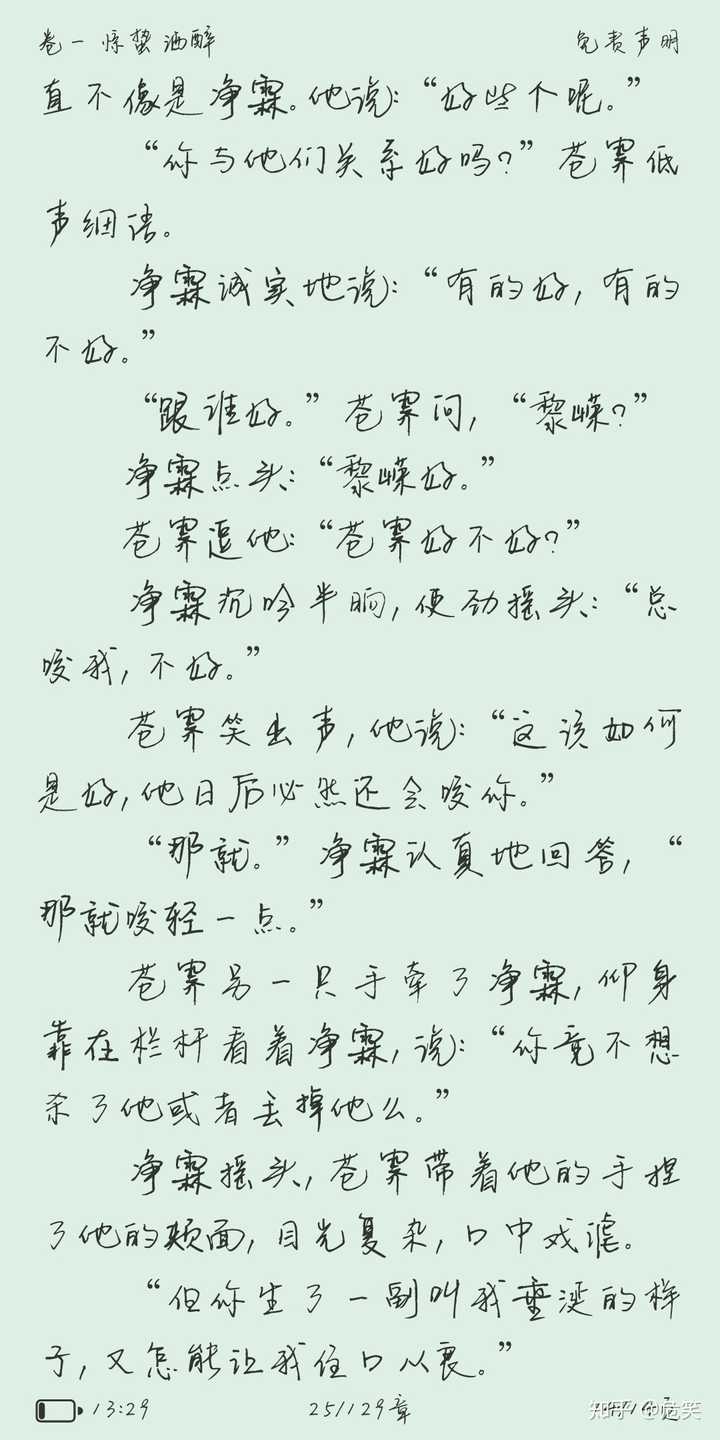 卷一 惊蛰 洒醉 免责声明
直不像是净霖。他说：“好些个呢。”
“你与他们关系好吗？”苍霁低
声细语。
净霖诚实地说：“有的好，有的
不好。”
“跟谁好。”苍霁问，“黎嵘？”
净霖点头：“黎嵘好。”
苍霁逗他：“苍霁好不好？”
净霖沉吟半晌，使劲摇头：“总
咬我，不好。”
苍霁笑出声，他说：“这该如何
是好，他日后必然还会咬你。”
“那就。”净霖认真地回答，“
那就咬轻一点。”
苍霁另一只手牵了净霖，仰身
靠在栏杆看着净霖，说：“你竟不想
杀了他或者丢掉他么。”
净霖摇头，苍霁带着他的手捏
了他的颊面，目光复杂，口中戏谑。
“但你生了一副叫我垂涎的样
子，又怎能让我住口从衷。”
13:29 25/129章 知乎 @危笑